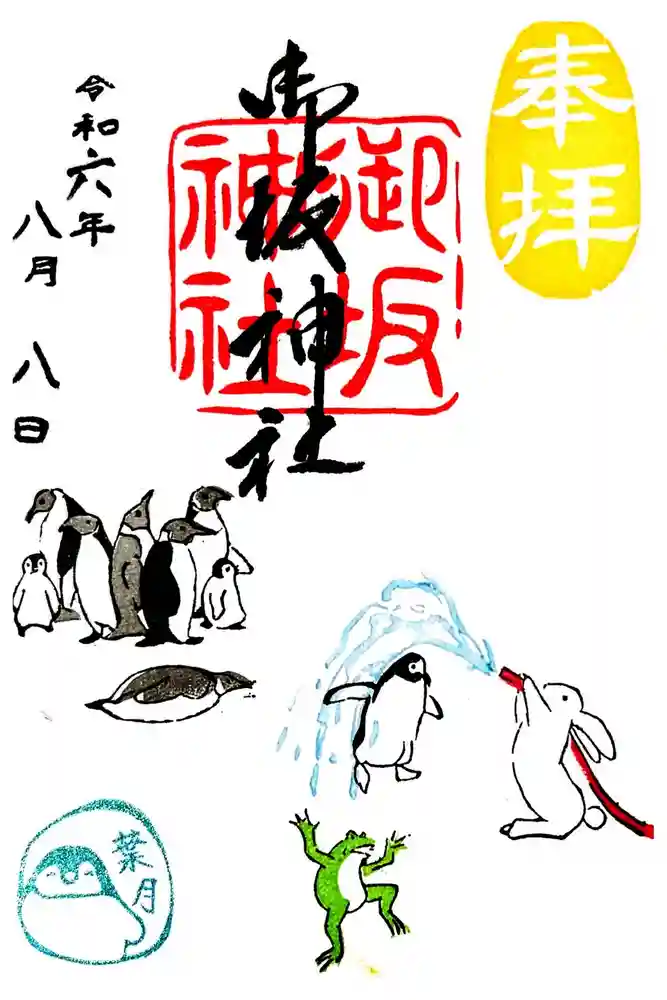 奉拝
御坂神社
御坂
神社
令和六年
八月 八日
葉月